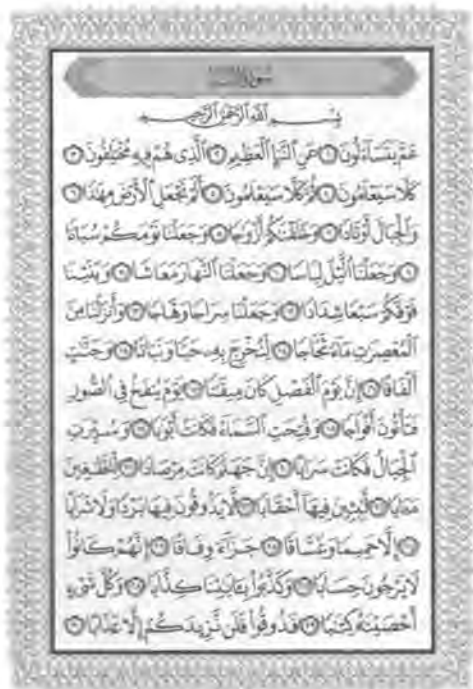 سورة النبإ
بِسْمِ اللَّهِ الرَّحْمَٰنِ الرَّحِيمِ
عَمَّ يَتَسَاءَلُونَ ١ عَنِ النَّبَإِ الْعَظِيمِ ٢ الَّذِي هُمْ فِيهِ مُخْتَلِفُونَ ٣
كَلَّا سَيَعْلَمُونَ ٤ ثُمَّ كَلَّا سَيَعْلَمُونَ ٥ أَلَمْ نَجْعَلِ الْأَرْضَ مِهَٰدًا ٦
وَالْجِبَالَ أَوْتَادًا ٧ وَخَلَقْنَٰكُمْ أَزْوَٰجًا ٨ وَجَعَلْنَا نَوْمَكُمْ سُبَاتًا
٩ وَجَعَلْنَا الَّيْلَ لِبَاسًا ١٠ وَجَعَلْنَا النَّهَارَ مَعَاشًا ١١ وَبَنَيْنَا
فَوْقَكُمْ سَبْعًا شِدَادًا ١٢ وَجَعَلْنَا سِرَاجًا وَهَّاجًا ١٣ وَأَنزَلْنَا مِنَ
الْمُعْصِرَٰتِ مَاءً ثَجَّاجًا ١٤ لِّنُخْرِجَ بِهِ حَبًّا وَنَبَاتًا ١٥ وَجَنَّٰتٍ
أَلْفَافًا ١٦ إِنَّ يَوْمَ الْفَصْلِ كَانَ مِيقَٰتًا ١٧ يَوْمَ يُنفَخُ فِي الصُّورِ
فَتَأْتُونَ أَفْوَاجًا ١٨ وَفُتِحَتِ السَّمَاءُ فَكَانَتْ أَبْوَٰبًا ١٩ وَسُيِّرَتِ
الْجِبَالُ فَكَانَتْ سَرَابًا ٢٠ إِنَّ جَهَنَّمَ كَانَتْ مِرْصَادًا ٢١ لِّلطَّٰغِينَ
مَـَٔابًا ٢٢ لَّٰبِثِينَ فِيهَا أَحْقَابًا ٢٣ لَّا يَذُوقُونَ فِيهَا بَرْدًا وَلَا شَرَابًا
٢٤ إِلَّا حَمِيمًا وَغَسَّاقًا ٢٥ جَزَاءً وِفَاقًا ٢٦ إِنَّهُمْ كَانُوا
لَا يَرْجُونَ حِسَابًا ٢٧ وَكَذَّبُوا بِـَٔايَٰتِنَا كِذَّابًا ٢٨ وَكُلَّ شَيْءٍ
أَحْصَيْنَٰهُ كِتَٰبًا ٢٩ فَذُوقُوا فَلَن نَّزِيدَكُمْ إِلَّا عَذَابًا ٣٠